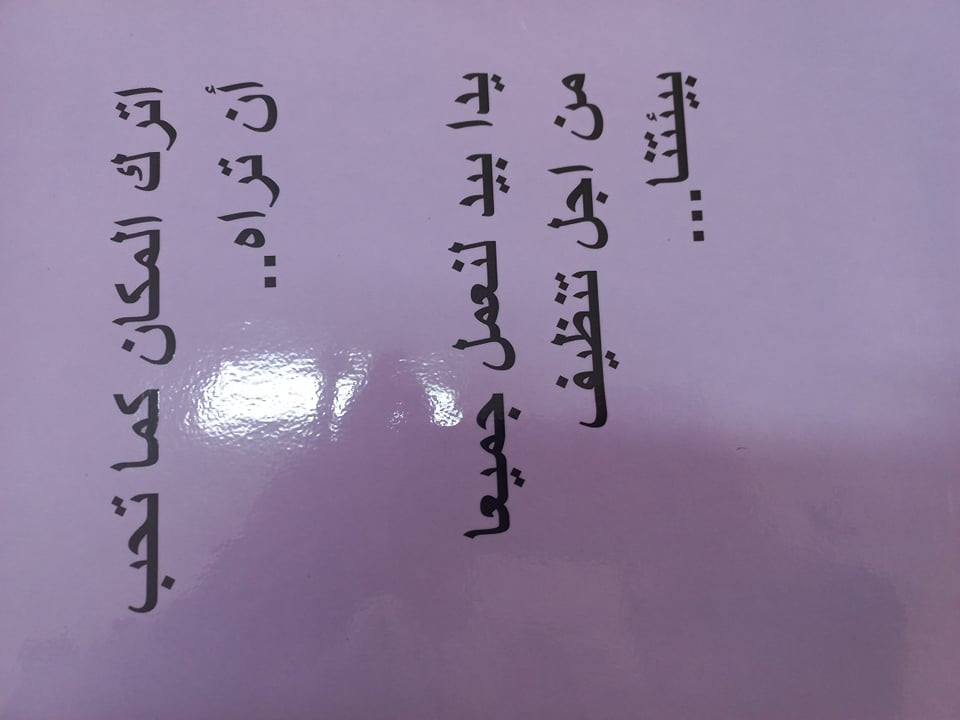 اترك المكان كما تحب
أن تراه..
يدا بيد لنعمل جميعا
من اجل تنظيف
بيئتنا...